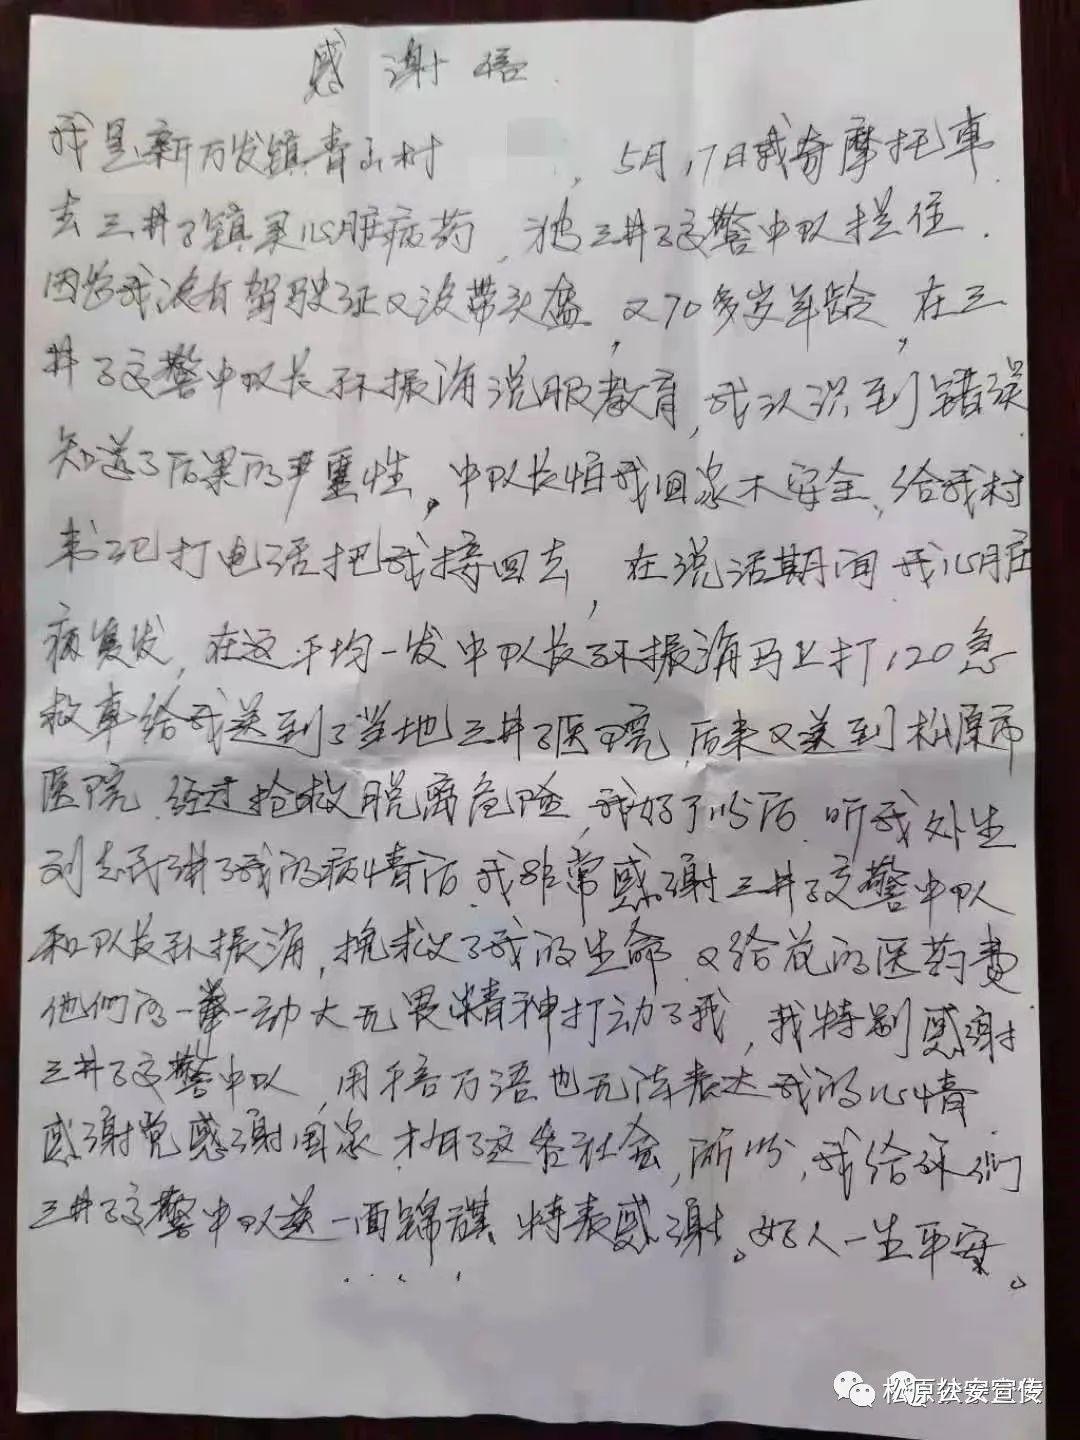 感谢语
我是新万发镇青山村 ，5月17日我奇摩托车
去三井子镇买心脏病药，被三井子交警中队拦住.
因为我没有驾驶证又没带头盔 又70多岁年龄，在三
井子交警中队长孙振海说服教育，我认识到错误
知道了后果的严重性。中队长怕我回家不安全，给我村
书记打电话把我接回去，在说话期间我心脏
病复发，在这千均一发中队长孙振海马上打120急
救车给我送到了当地三井子医院，后来又送到松原市
医院.经过抢救脱离危险，我好了以后.听我外生
刘志民讲了我的病情后.我非常感谢三井子交警中队
和队长孙振海，挽救了我的生命.又给花的医药费
他们的一举一动大无畏精神打动了我，我特别感谢
三井子交警中队，用千言万语也无法表达我的心情
感谢党感谢国家.有了这社会，所以，我给你们
三井子交警中队送一面锦旗.特表感谢。好人一生平安。
松原公安宣传